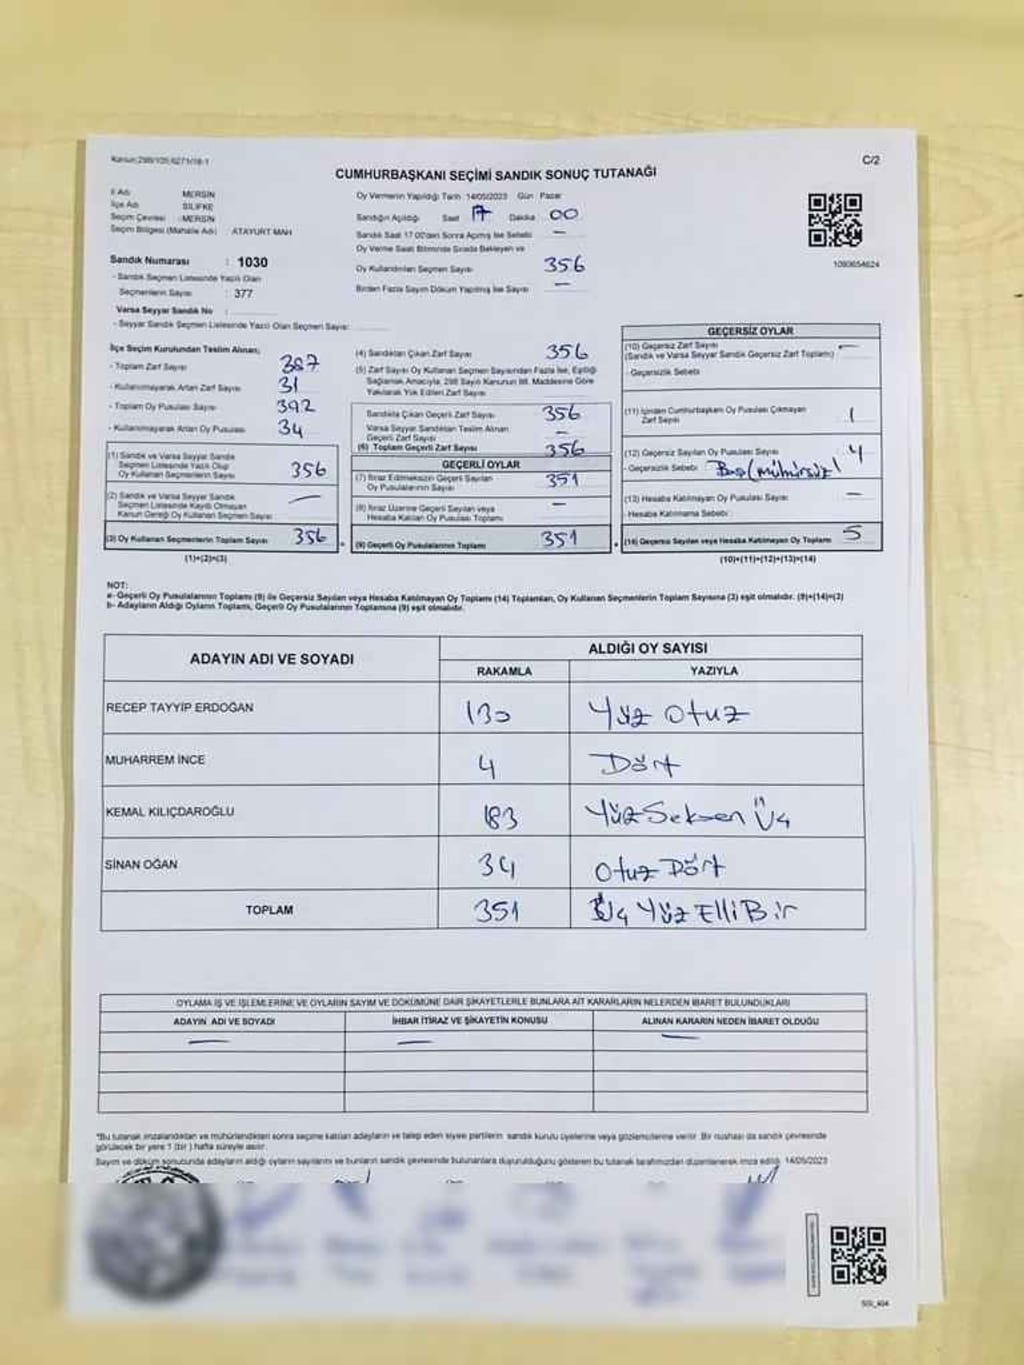 Kanun:298/105;6271/18-1
C/2
CUMHURBAŞKANI SEÇİMİ SANDIK SONUÇ TUTANAĞI
İl Adı : MERSİN
İlçe Adı : SİLİFKE
Seçim Çevresi : MERSİN
Seçim Bölgesi (Mahalle Adı) : ATAYURT MAH
Sandık Numarası : 1030
- Sandık Seçmen Listesinde Yazılı Olan
Seçmenlerin Sayısı : 377
Varsa Seyyar Sandık No :
- Seyyar Sandık Seçmen Listesinde Yazıl Olan Seçmen Sayısı:
Oy Vermenin Yapıldığı Tarih: 14/05/2023 Gün: Pazar
Sandığın Açıldığı Saat 17 Dakika 00
Sandık Saat 17.00'den Sonra Açılmış İse Sebebi —
Oy Verme Saati Bitiminde Sırada Bekleyen ve
Oy Kullandırılan Seçmen Sayısı 356
Birden Fazla Sayım Döküm Yapılmış İse Sayısı —
1090654624
İlçe Seçim Kurulundan Teslim Alınan;
- Toplam Zarf Sayısı 387
- Kullanılmayarak Artan Zarf Sayısı 31
- Toplam Oy Pusulası Sayısı 392
- Kullanılmayarak Artan Oy Pusulası 34
(1) Sandık ve Varsa Seyyar Sandık
Seçmen Listesinde Yazılı Olup
Oy Kullanan Seçmen Sayısı 356
(2) Sandık ve Varsa Seyyar Sandık
Seçmen Listesinde Kayıtlı Olmayan
Kanun Gereği Oy Kullanan Seçmen Sayısı —
(3) Oy Kullanan Seçmenlerin Toplam Sayısı 356
(1)+(2)=(3)
(4) Sandıktan Çıkan Zarf Sayısı 356
(5) Zarf Sayısı Oy Kullanan Seçmen Sayısından Fazla İse, Eşitliği
Sağlamak Amacıyla, 298 Sayılı Kanunun 98. Maddesine Göre
Yakılarak Yok Edilen Zarf Sayısı
Sandıkta Çıkan Geçerli Zarf Sayısı 356
Varsa Seyyar Sandıktan Teslim Alınan
Geçerli Zarf Sayısı —
(6) Toplam Geçerli Zarf Sayısı 356
GEÇERLİ OYLAR
(7) İtiraz Edilmeksizin Geçerli Sayılan
Oy Pusulalarının Sayısı 351
(8) İtiraz Üzerine Geçerli Sayılan veya
Hesaba Katılan Oy Pusulası Toplamı —
(9) Geçerli Oy Pusulalarının Toplamı 351
GEÇERSİZ OYLAR
(10) Geçersiz Zarf Sayısı —
(Sandık ve Varsa Seyyar Sandık Geçersiz Zarf Toplamı)
- Geçersizlik Sebebi
(11) İçinden Cumhurbaşkanı Oy Pusulası Çıkmayan
Zarf Sayısı 1
(12) Geçersiz Sayılan Oy Pusulası Sayısı 4
- Geçersizlik Sebebi: Boş (mühürsüz)
(13) Hesaba Katılmayan Oy Pusulası Sayısı —
- Hesaba Katılmama Sebebi :
(14) Geçersiz Sayılan veya Hesaba Katılmayan Oy Toplamı 5
(10)+(11)+(12)+(13)=(14)
NOT:
a- Geçerli Oy Pusulalarının Toplamı (9) ile Geçersiz Sayılan veya Hesaba Katılmayan Oy Toplamı (14) Toplamları, Oy Kullanan Seçmenlerin Toplam Sayısına (3) eşit olmalıdır. (9)+(14)=(3)
b- Adayların Aldığı Oyların Toplamı, Geçerli Oy Pusulalarının Toplamına (9) eşit olmalıdır.
ADAYIN ADI VE SOYADI ALDIĞI OY SAYISI
RAKAMLA YAZIYLA
RECEP TAYYİP ERDOĞAN 130 Yüz Otuz
MUHARREM İNCE 4 Dört
KEMAL KILIÇDAROĞLU 183 Yüz Seksen Üç
SİNAN OĞAN 34 Otuz Dört
TOPLAM 351 Üç Yüz Elli Bir
OYLAMA İŞ VE İŞLEMLERİNE VE OYLARIN SAYIM VE DÖKÜMÜNE DAİR ŞİKAYETLERLE BUNLARA AİT KARARLARIN NELERDEN İBARET BULUNDUKLARI
ADAYIN ADI VE SOYADI İHBAR İTİRAZ VE ŞİKAYETİN KONUSU ALINAN KARARIN NEDEN İBARET OLDUĞU
— — —
*Bu tutanak imzalandıktan ve mühürlendikten sonra seçime katılan adayların ve talep eden siyasi partilerin sandık kurulu üyelerine veya gözlemcilerine verilir. Bir nüshası da sandık çevresinde
görülecek bir yere 1 (bir) hafta süreyle asılır.
Sayım ve döküm sonucunda adayların aldığı oyların sayılarını ve bunların sandık çevresinde bulunanlara duyurulduğunu gösteren bu tutanak tarafımızdan düzenlenerek imza edildi. 14/05/2023